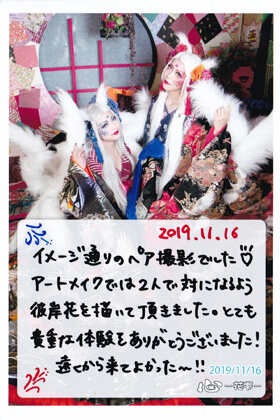 2019.11.16
イメージ通りのペア撮影でした♡
アートメイクでは2人で対になるよう
彼岸花を描いて頂きました。とても
貴重な体験をありがとうございました!
遠くから来てよかった〜!!
2019/11/16
心 -花雫-